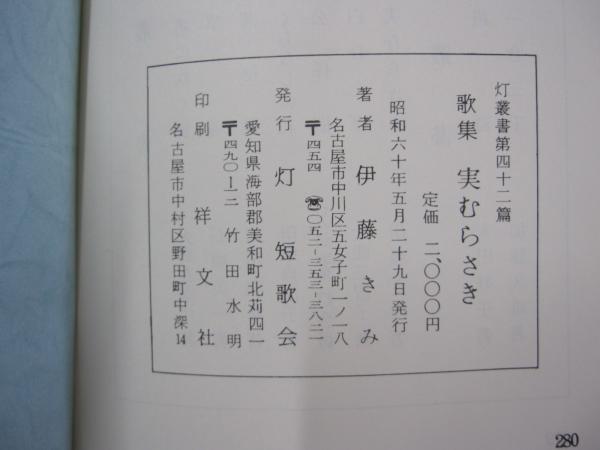 灯叢書第四十二篇
歌集 実むらさき
定価 二、〇〇〇円
昭和六十年五月二十九日発行
著者 伊藤きみ
名古屋市中川区五女子町一ノ一八
〒四五四 ☎〇五二-三五三-三八二一
発行 灯短歌会
愛知県海部郡美和町北苅四一
〒四九〇-一二 竹田水明
印刷 祥文社
名古屋市中村区野田町中深14
280